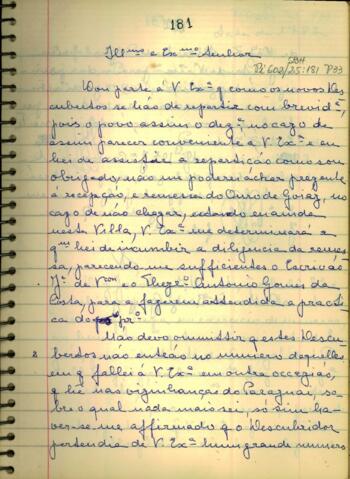 181
Ill.mos e Ex.mo Senhor
SBH
Pi 602/25:181 P33
Dou parte á V. Ex.ª q como os novos Des
cubertos se hão de repartir com brevid.e,
pois o povo assim o dez.ª no cazo de
assim parecer conveniente á V. Ex.ª e eu
hei de assistir á repartição como sou
obrigado, não me poderei áchar prezente
á recepção, e remessa do Ouro de Goiaz, no
cazo de não chegar, estando eu ainda
nesta Villa, V. Ex.ª me determinará a
q.m hei de incumbir a diligencia da remes
sa, parecendo-me sufficientes o Escrivão
J.e de e o Thezr.º Antonio Gomes da
Costa, para a fazerem attendida a practi
ca do pr.º
Não devo ommittir q estes Descu
bertos não entrão no numero daquelles
em q fallei á V. Ex.ª em outra occazião,
q he nas vizinhanças do Paraguai, so
bre o qual nada mais sei, só sim ha-
ver-se-me affirmado q o Descubridor
pertendia de V. Ex.ª hum grande numero